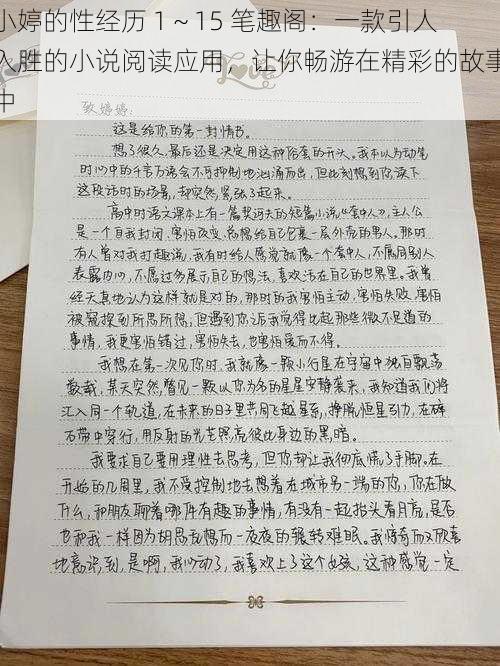 小婷的性经历 1～15 笔趣阁：一款引人
入胜的小说阅读应用，让你畅游在精彩的故事
中
Love
致婷婷：
这是给你的第一封情书。
想了很久，最后还是决定用这种俗套的开头。我本以为动笔
时心中的千言万语会不可抑制地汹涌而出，但此刻想到你读下
这段话时的场景，却突然紧张了起来。
高中时语文课本上有一篇契诃夫的短篇小说《套中人》，主人公
是一个自我封闭，害怕改变，总想给自己包裹一层外壳的男人。那时
有人曾对我打趣说，我有时给人感觉就像一个套中人，不愿向别人
表露内心，不愿过多展示自己的想法，喜欢活在自己的世界里。我曾
经天真地认为这样就是对的，那时的我害怕主动，害怕失败，害怕
被窥探到所思所想，但遇到你让我觉得比起那些微不足道的
事情，我更害怕错过，害怕失去，也害怕爱而不得。
我想在第一次见你时，我就像一颗小行星在宇宙中独自飘荡
数载，某天突然瞥见一颗以你为名的星星安静袭来，我知道我们将
汇入同一个轨道，在未来的日子里共同飞越星系，挣脱恒星引力，在碎
石带中穿行，用反射的光芒照亮彼此身边的黑暗。
我要求自己要用理性去思考，但你却让我彻底慌了手脚。在
开始的几周里，我不受控制地去想着在城市另一端的你，你在做
什么，和朋友聊着哪件有趣的事情，有没有一起抬头看月亮，是否
也和我一样因为胡思乱想而一夜夜的辗转难眠。我惊奇而又欣喜
地意识到，是啊，我心动了，我喜欢上了这个女孩，这种感觉一定